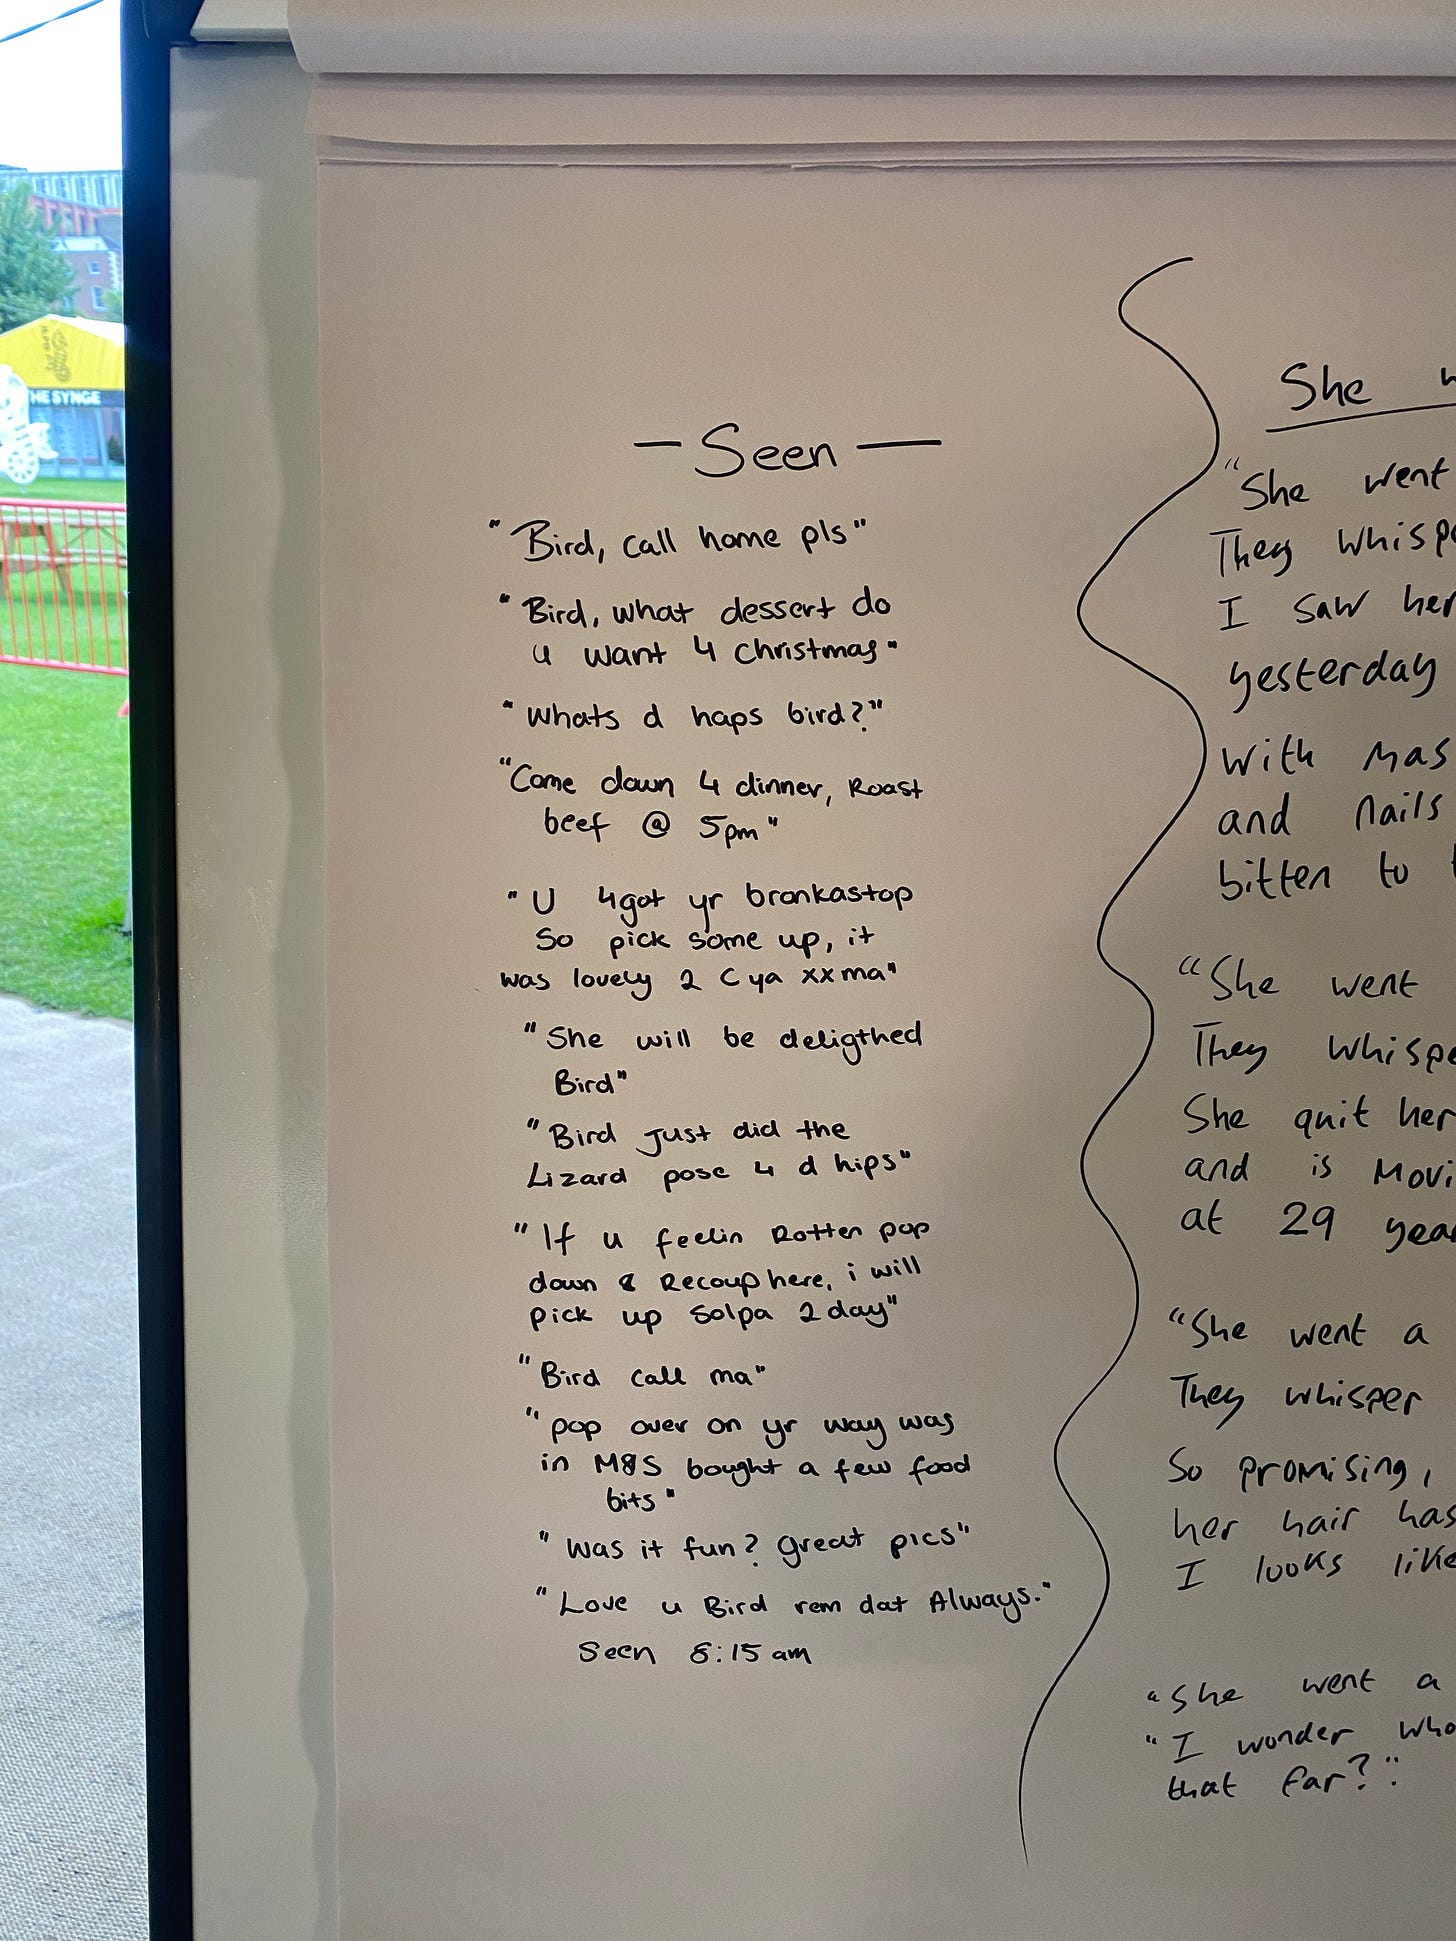 HE SYNGE
— Seen —
"Bird, call home pls"
"Bird, what dessert do
u want 4 christmas"
"Whats d haps bird?"
"Come down 4 dinner, Roast
beef @ 5pm"
"U 4got yr bronkastop
So pick some up, it
was lovely 2 C ya xx ma"
"She will be deligthed
Bird"
"Bird just did the
Lizard pose 4 d hips"
"If u feelin Rotten pop
down & Recoup here, i will
pick up Solpa 2day"
"Bird call ma"
"pop over on yr way was
in M&S bought a few food
bits"
"Was it fun? Great pics"
"Love u Bird rem dat Always."
Seen 8:15 am
She
"She went
They whispe
I saw her
yesterday
with mas
and nails
bitten to
"She went
They whispe
She quit her
and is Movi
at 29 yea
"She went a
They whisper
So promising,
her hair has
I looks like
"She went a
"I wonder who
that far?".